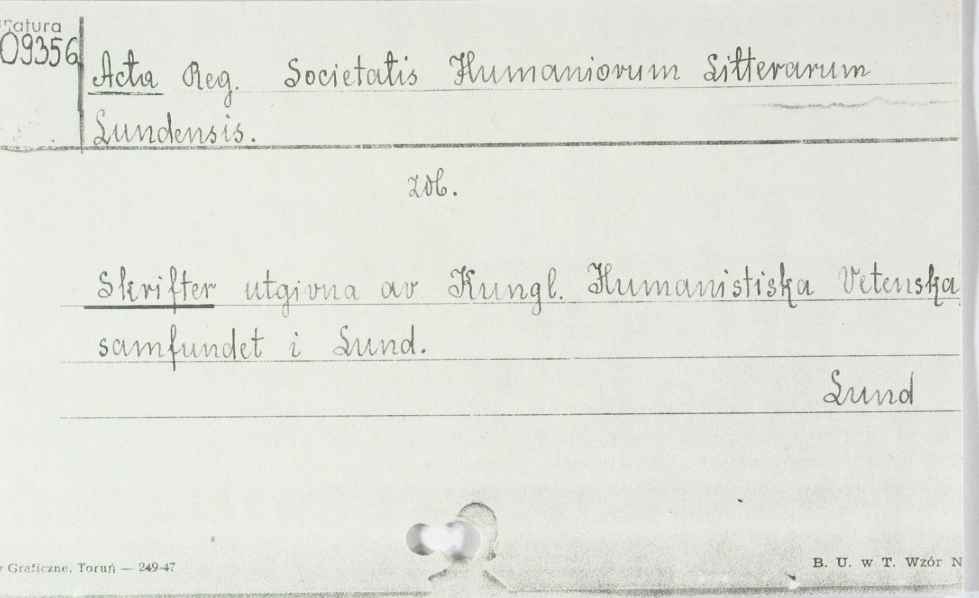 09356
Acta Reg. Societatis Humaniorum Litterarum
Lundensis.
zob.
Skrifter utgivna av Kungl. Humanistiska Vetenska
samfundet i Lund.
Lund
Graficzne, Toruń — 249-47
B. U. w T. Wzór N